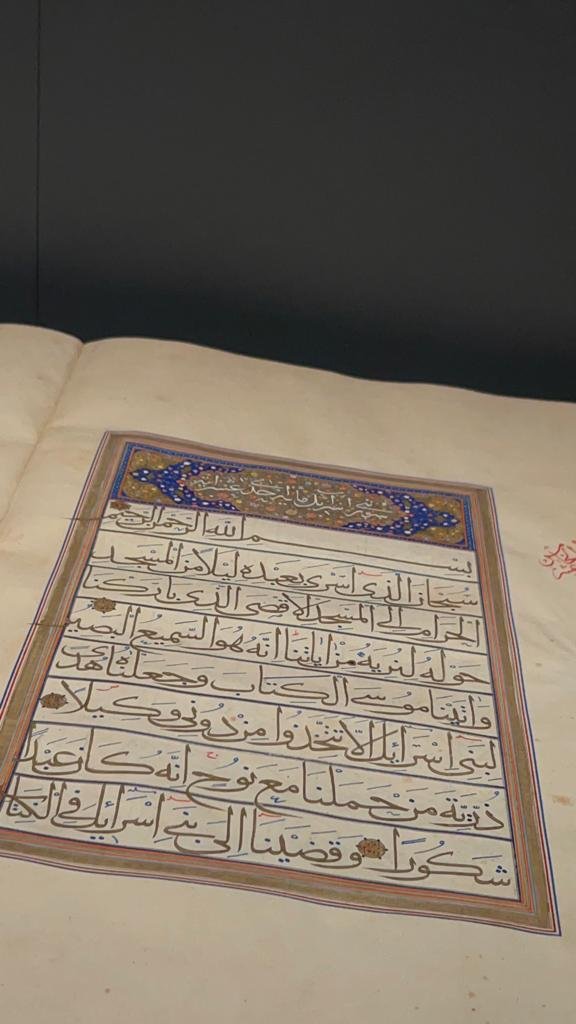 سورة بنى اسرائيل مائة واحدى عشر اية
بسم الله الرحمن الرحيم
سبحان الذى اسرى بعبده ليلا من المسجد
الحرام الى المسجد الاقصى الذى باركنا
حوله لنريه من اياتنا انه هو السميع البصير
واتينا موسى الكتاب وجعلناه هدى
لبنى اسرائيل الا تتخذوا من دونى وكيلا
ذرية من حملنا مع نوح انه كان عبدا
شكورا وقضينا الى بنى اسرائيل فى الكتاب